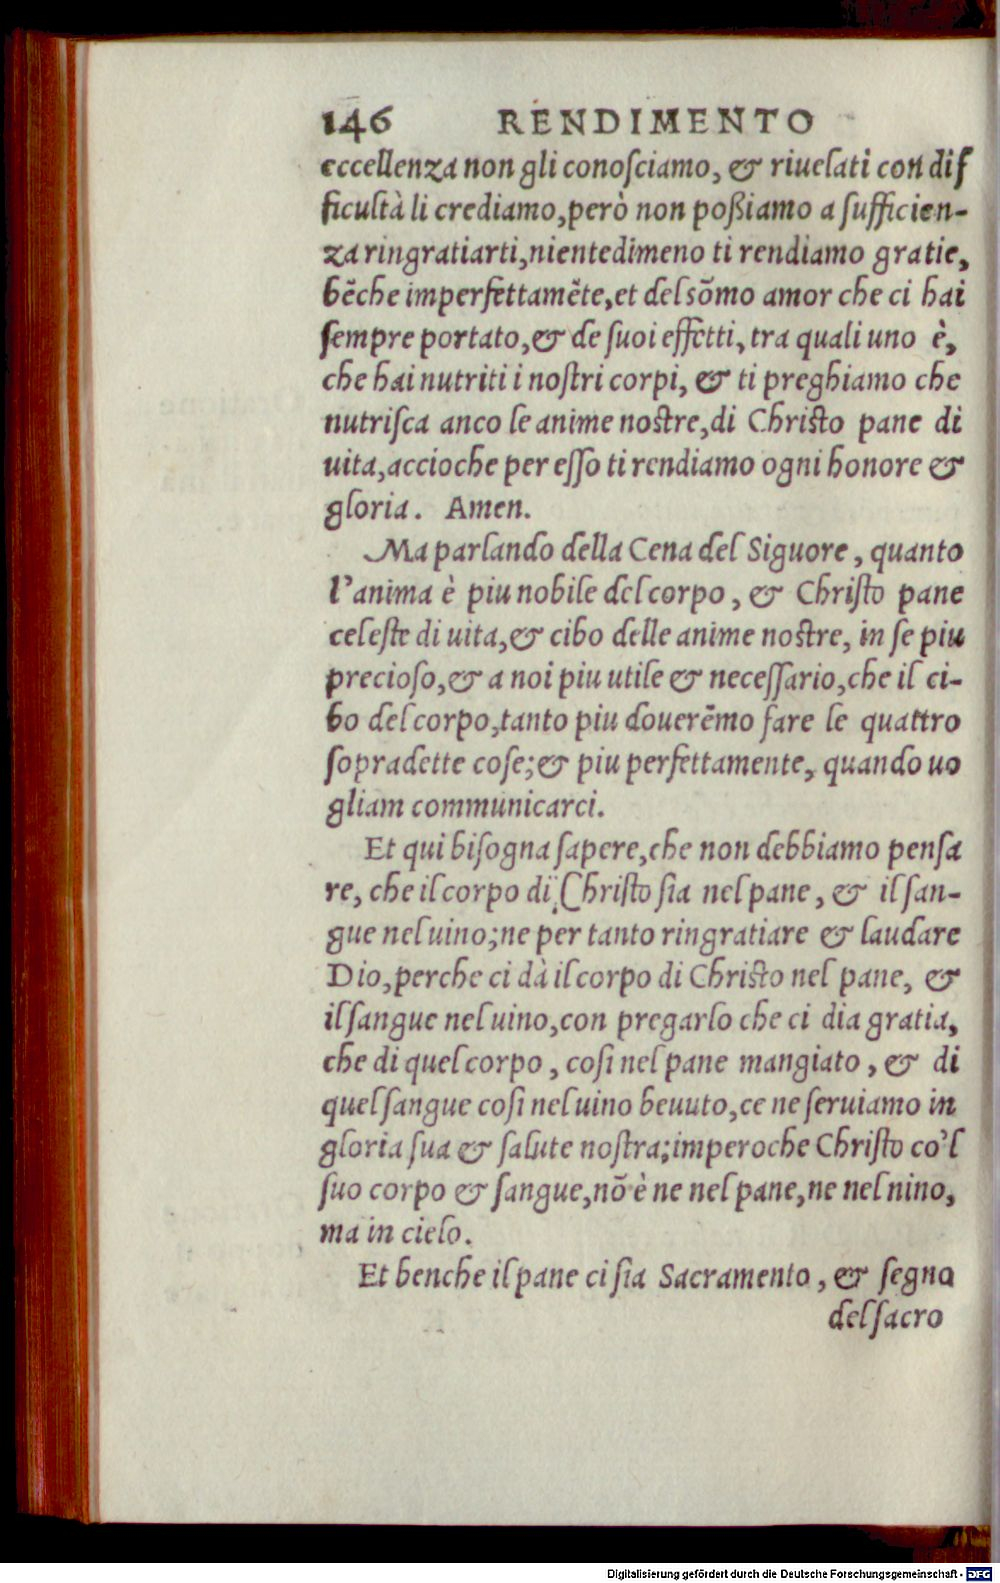 146 RENDIMENTO
eccellenza non gli conosciamo, & riuelati con dif
ficultà li crediamo, però non poßiamo a sufficien-
za ringratiarti, nientedimeno ti rendiamo gratie,
bẽche imperfettamẽte, et del sõmo amor che ci hai
sempre portato, & de suoi effetti, tra quali uno è,
che hai nutriti i nostri corpi, & ti preghiamo che
nutrisca anco le anime nostre, di Christo pane di
uita, accioche per esso ti rendiamo ogni honore &
gloria. Amen.
Ma parlando della Cena del Siguore, quanto
l'anima è piu nobile del corpo, & Christo pane
celeste di uita, & cibo delle anime nostre, in se piu
precioso, & a noi piu utile & necessario, che il ci-
bo del corpo, tanto piu douerẽmo fare le quattro
sopradette cose; & piu perfettamente, quando uo
gliam communicarci.
Et qui bisogna sapere, che non debbiamo pensa
re, che il corpo di Christo sia nel pane, & il san-
gue nel uino; ne per tanto ringratiare & laudare
Dio, perche ci dà il corpo di Christo nel pane, &
il sangue nel uino, con pregarlo che ci dia gratia,
che di quel corpo, cosi nel pane mangiato, & di
quel sangue cosi nel uino beuuto, ce ne seruiamo in
gloria sua & salute nostra; imperoche Christo co'l
suo corpo & sangue, nõ è ne nel pane, ne nel nino,
ma in cielo.
Et benche il pane ci sia Sacramento, & segno
del sacro
Digitalisierung gefördert durch die Deutsche Forschungsgemeinschaft - DFG